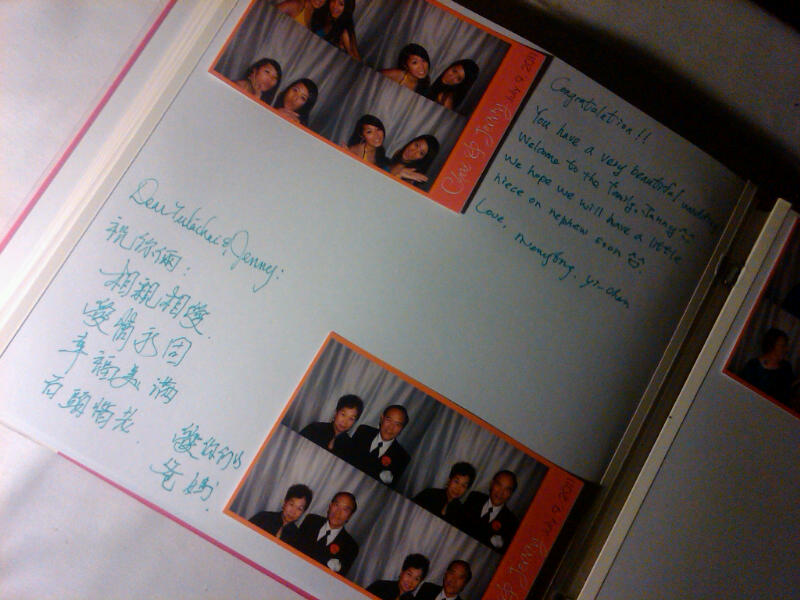 Congratulation!!
You have a very beautiful wedding
Welcome to the family, Jenny
We hope we will have a little
niece or nephew soon
Love, Yi-chen
& Jenny July 9, 2011
Dear & Jenny:
祝你倆:
相親相愛
愛情永固
幸福美滿
百頭偕老
愛你们的
爸媽
& Jenny July 9, 2011